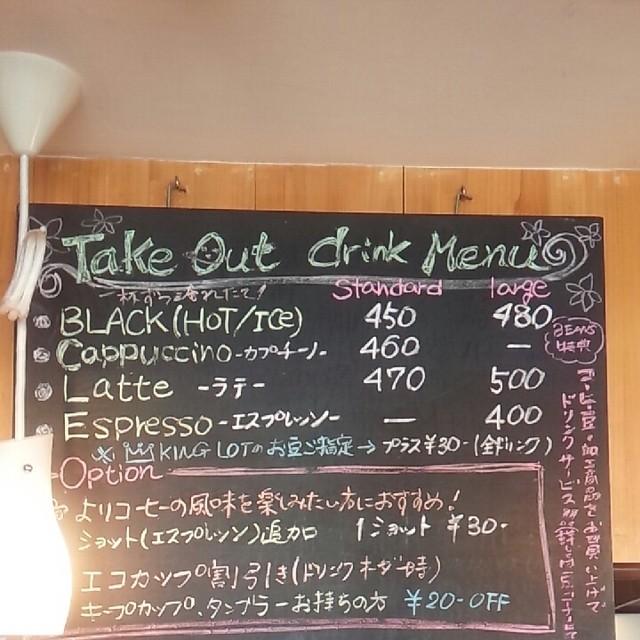 Take Out drink Menu
一杯ずつ淹れたて!
Standard large
BLACK (HOT/ICE) 450 480
Cappuccino -カプチーノ- 460 —
Latte -ラテ- 470 500
Espresso -エスプレッソ- — 400
※ KING LOTのお豆ご指定→プラス¥30-(全ドリンク)
Option
よりコーヒーの風味を楽しみたい方におすすめ!
ショット(エスプレッソ)追加 1ショット ¥30-
エコカップ割引き(ドリンクオーダー時)
キープカップ、タンブラーお持ちの方 ¥20-OFF
BEANS
特典
コーヒー豆・加工商品をお買い上げで
ドリンクサービス